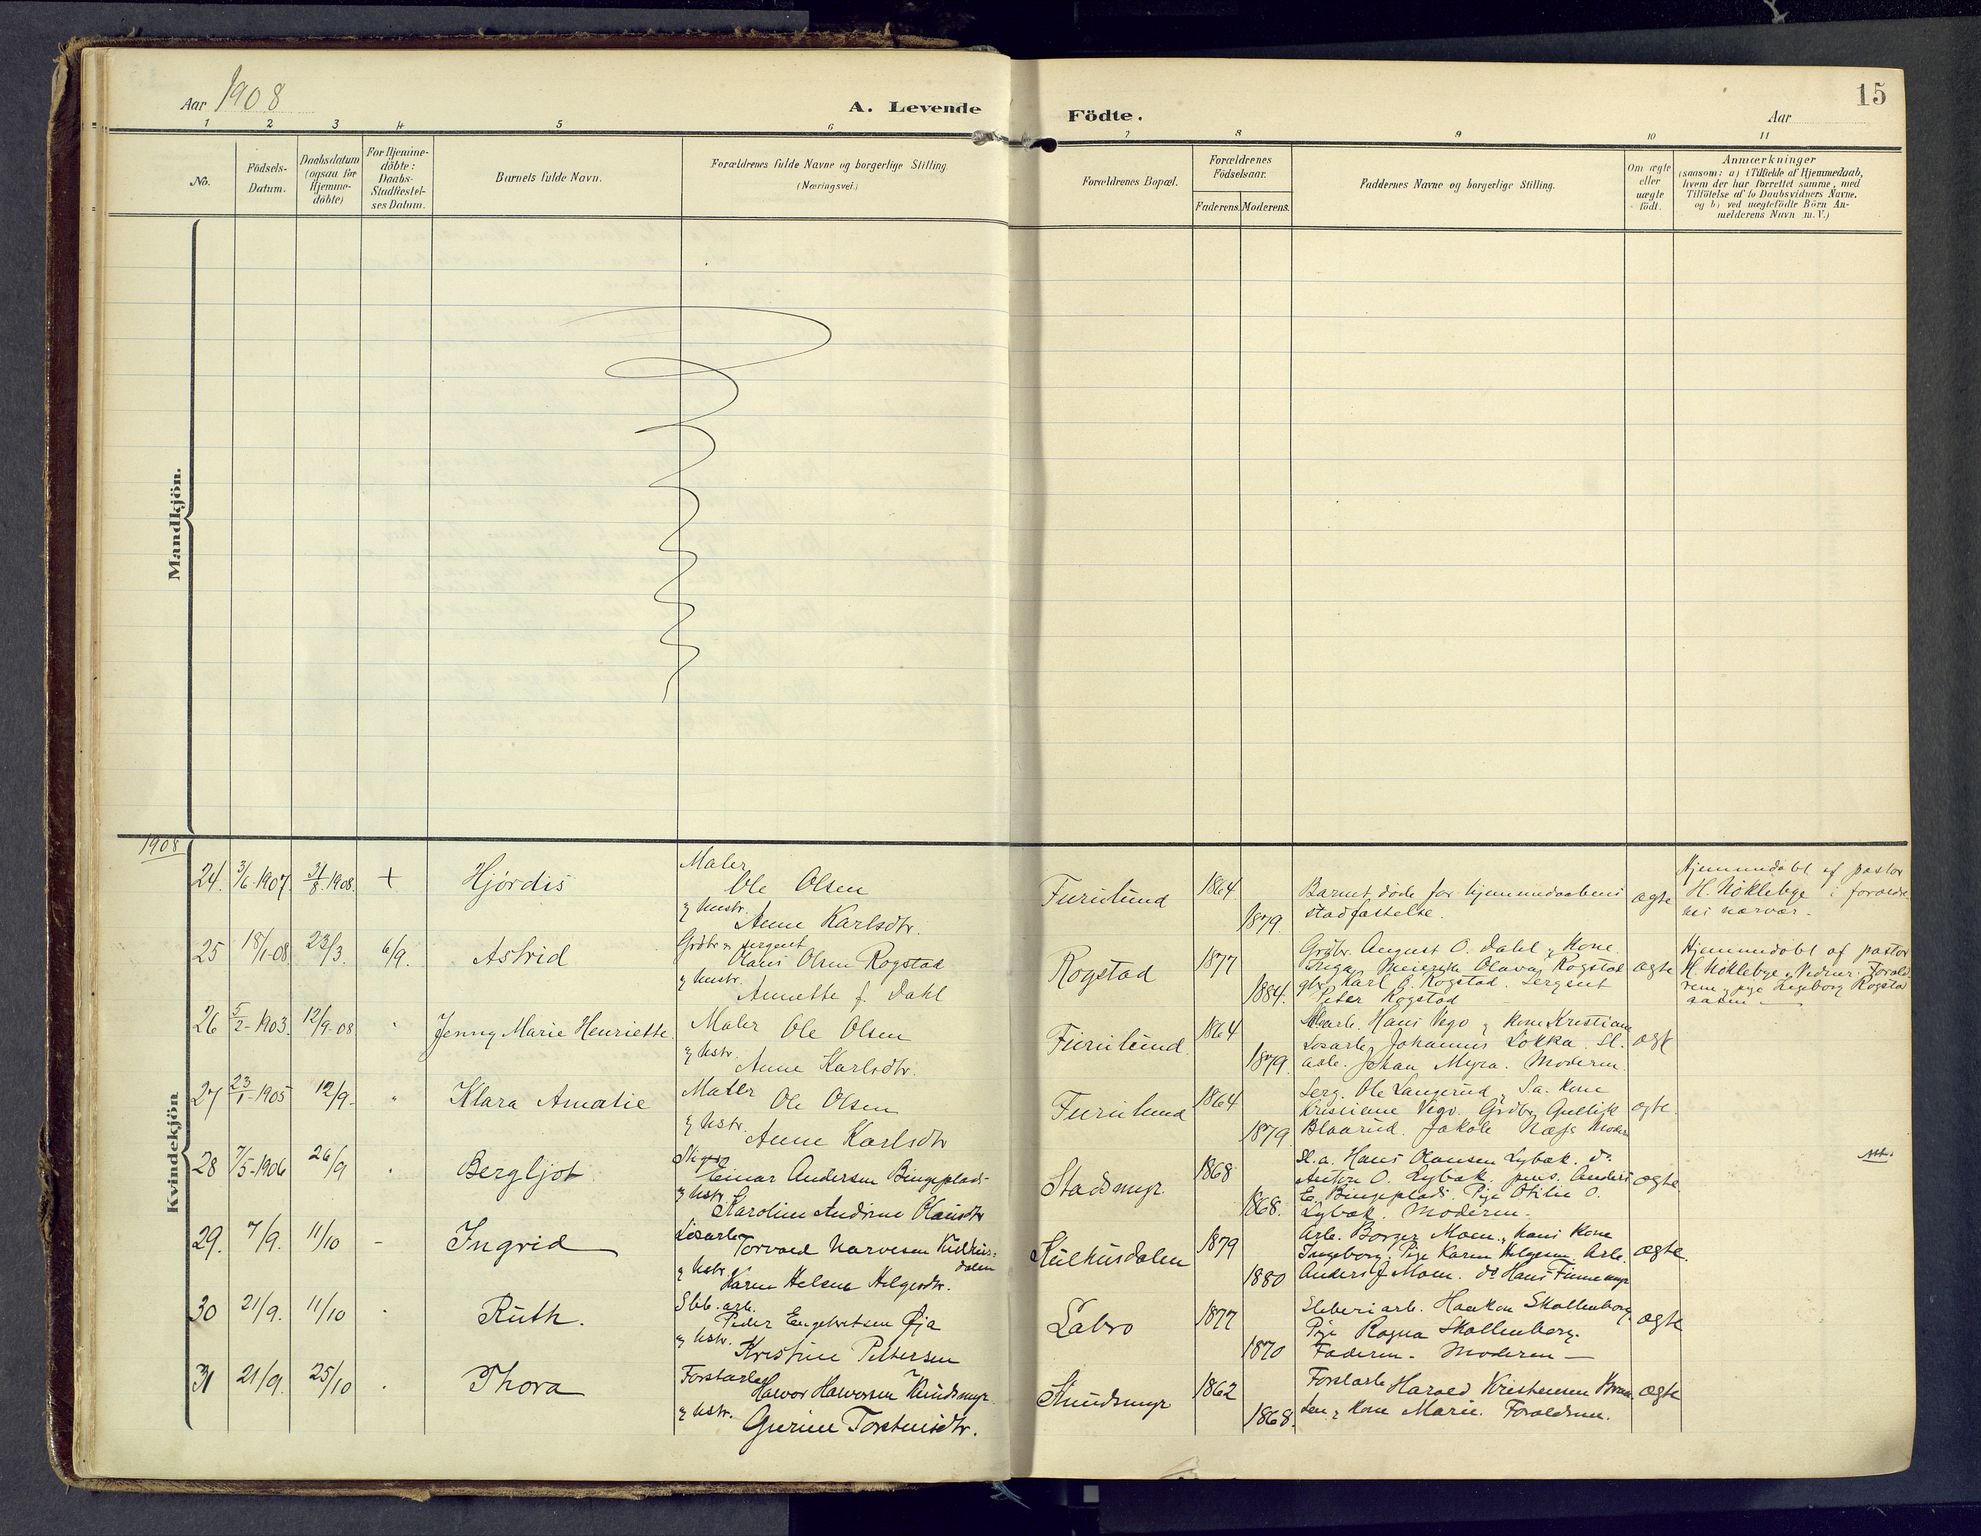 Aar 1908
A. Levende Födte.
Aar
15
1 2 3 4 5 6 7 8 9 10 11
No.
Födsels-
Datum.
Daabsdatum
(ogsaa for
Hjemme-
döbte)
For Hjemme-
döbte:
Daabs-
Stadfæstel-
ses Datum.
Barnets fulde Navn.
Forældrenes fulde Navne og borgerlige Stilling
(Næringsvei.)
Forældrenes Bopæl.
Forældrenes
Födselsaar.
Faderens. Moderens.
Faddernes Navne og borgerlige Stilling.
Om ægte
eller
uægte
födt.
Anmærkninger
(saasom: a) i Tilfælde af Hjemmedaab,
hvem der har forrettet samme, med
Tilföielse af to Daabsvidners Navne.
og b) ved uægtefödte Börn An-
melderens Navn m. V.)
Mandkjön.
Kvindekjön
1908
24. 3/6-1907. 31/8 1908. + Hjórdis
Maler
Ole Olsen
og hustr.
Anne Karlsdtr.
Furulund 1864 1879.
Barnet døde før hjemmedaabens
stadfæstelse.
ægte
Hjemmedøbt af pastor
H. Nøklebye i foreldre
nes nærvær.
25 18/1-08 23/3. 6/9. Astrid
Grdbr. og sergent
Olaus Olsen Rogstad
og hustr.
Annette f. Dahl
Rogstad 1877 1884.
Grdbr. August O. Dahl og kone
Inga Olava Rogstad
gbr. Karl O. Rogstad. Sergent
Peter Rogstad
ægte
Hjemmedøbt af pastor
H. Nøklebye. Vidner: Foræld
rene og pige Ingeborg Rogsta
26 5/2-1903. 12/9-08 " Jenny Marie Henriette
Maler Ole Olsen
og hstr.
Anne Karlsdtr.
Furulund. 1864 1879.
arb. Hans Vego og kone Kristiane
Losarb. Johannes Løkka. Sl.
arb. Johan Myra. Moderen.
ægte
27 23/1-1905 12/9. " Klara Amalie
Maler
Ole Olsen
og hstr.
Anne Karlsdtr
Furulund 1864 1879.
Serg. Ole Langerud, S.a. kone
Kristiane Vego. Grdbr. Gullik
Blaarud. Jakob Næss Moder
ægte.
28 7/5-1906 26/9 " Bergljot
Einar Andersen Bingeplads-
og hstr.
Karoline Andrine Olausdtr
Stadsmyr. 1868 1868.
Sl.a. Hans Olausen Lybæk. do
Anton O. Lybæk. pens. Anders
E. Bingeplads. Pige Otilie O.
Lybæk. Moderen.
ægte
29. 7/9. 11/10 - Ingrid
Losarb.
Torvald Narvesen Kulhus-
dalen
og hstr.
Karen Helene Helgesdtr.
Kulhusdalen 1879 1880
Arb. Borger Moen og hans kone
Ingeborg. Pige Karen Helgesen Arb.
Anders J. Moen. do Hans Finnemyr
ægte.
30 21/9. 11/10 " Ruth.
Slib.arb.
Peder Engebretsen Øja
og hstr.
Kristine Pettersen
Labro 1877 1870
Sliberiarb. Haakon Skollenborg.
Pige Ragna Skollenborg.
Faderen. Moderen
ægte
31 21/9. 25/10 " Thora
Forstarb.
Halvor Halvorsen Knudsmyr.
og hstr.
Gurine Torstensdtr.
Knudsmyr 1862 1868.
Forstarb Harald Kristensen
og kone Marie. Forældrene.
ægte